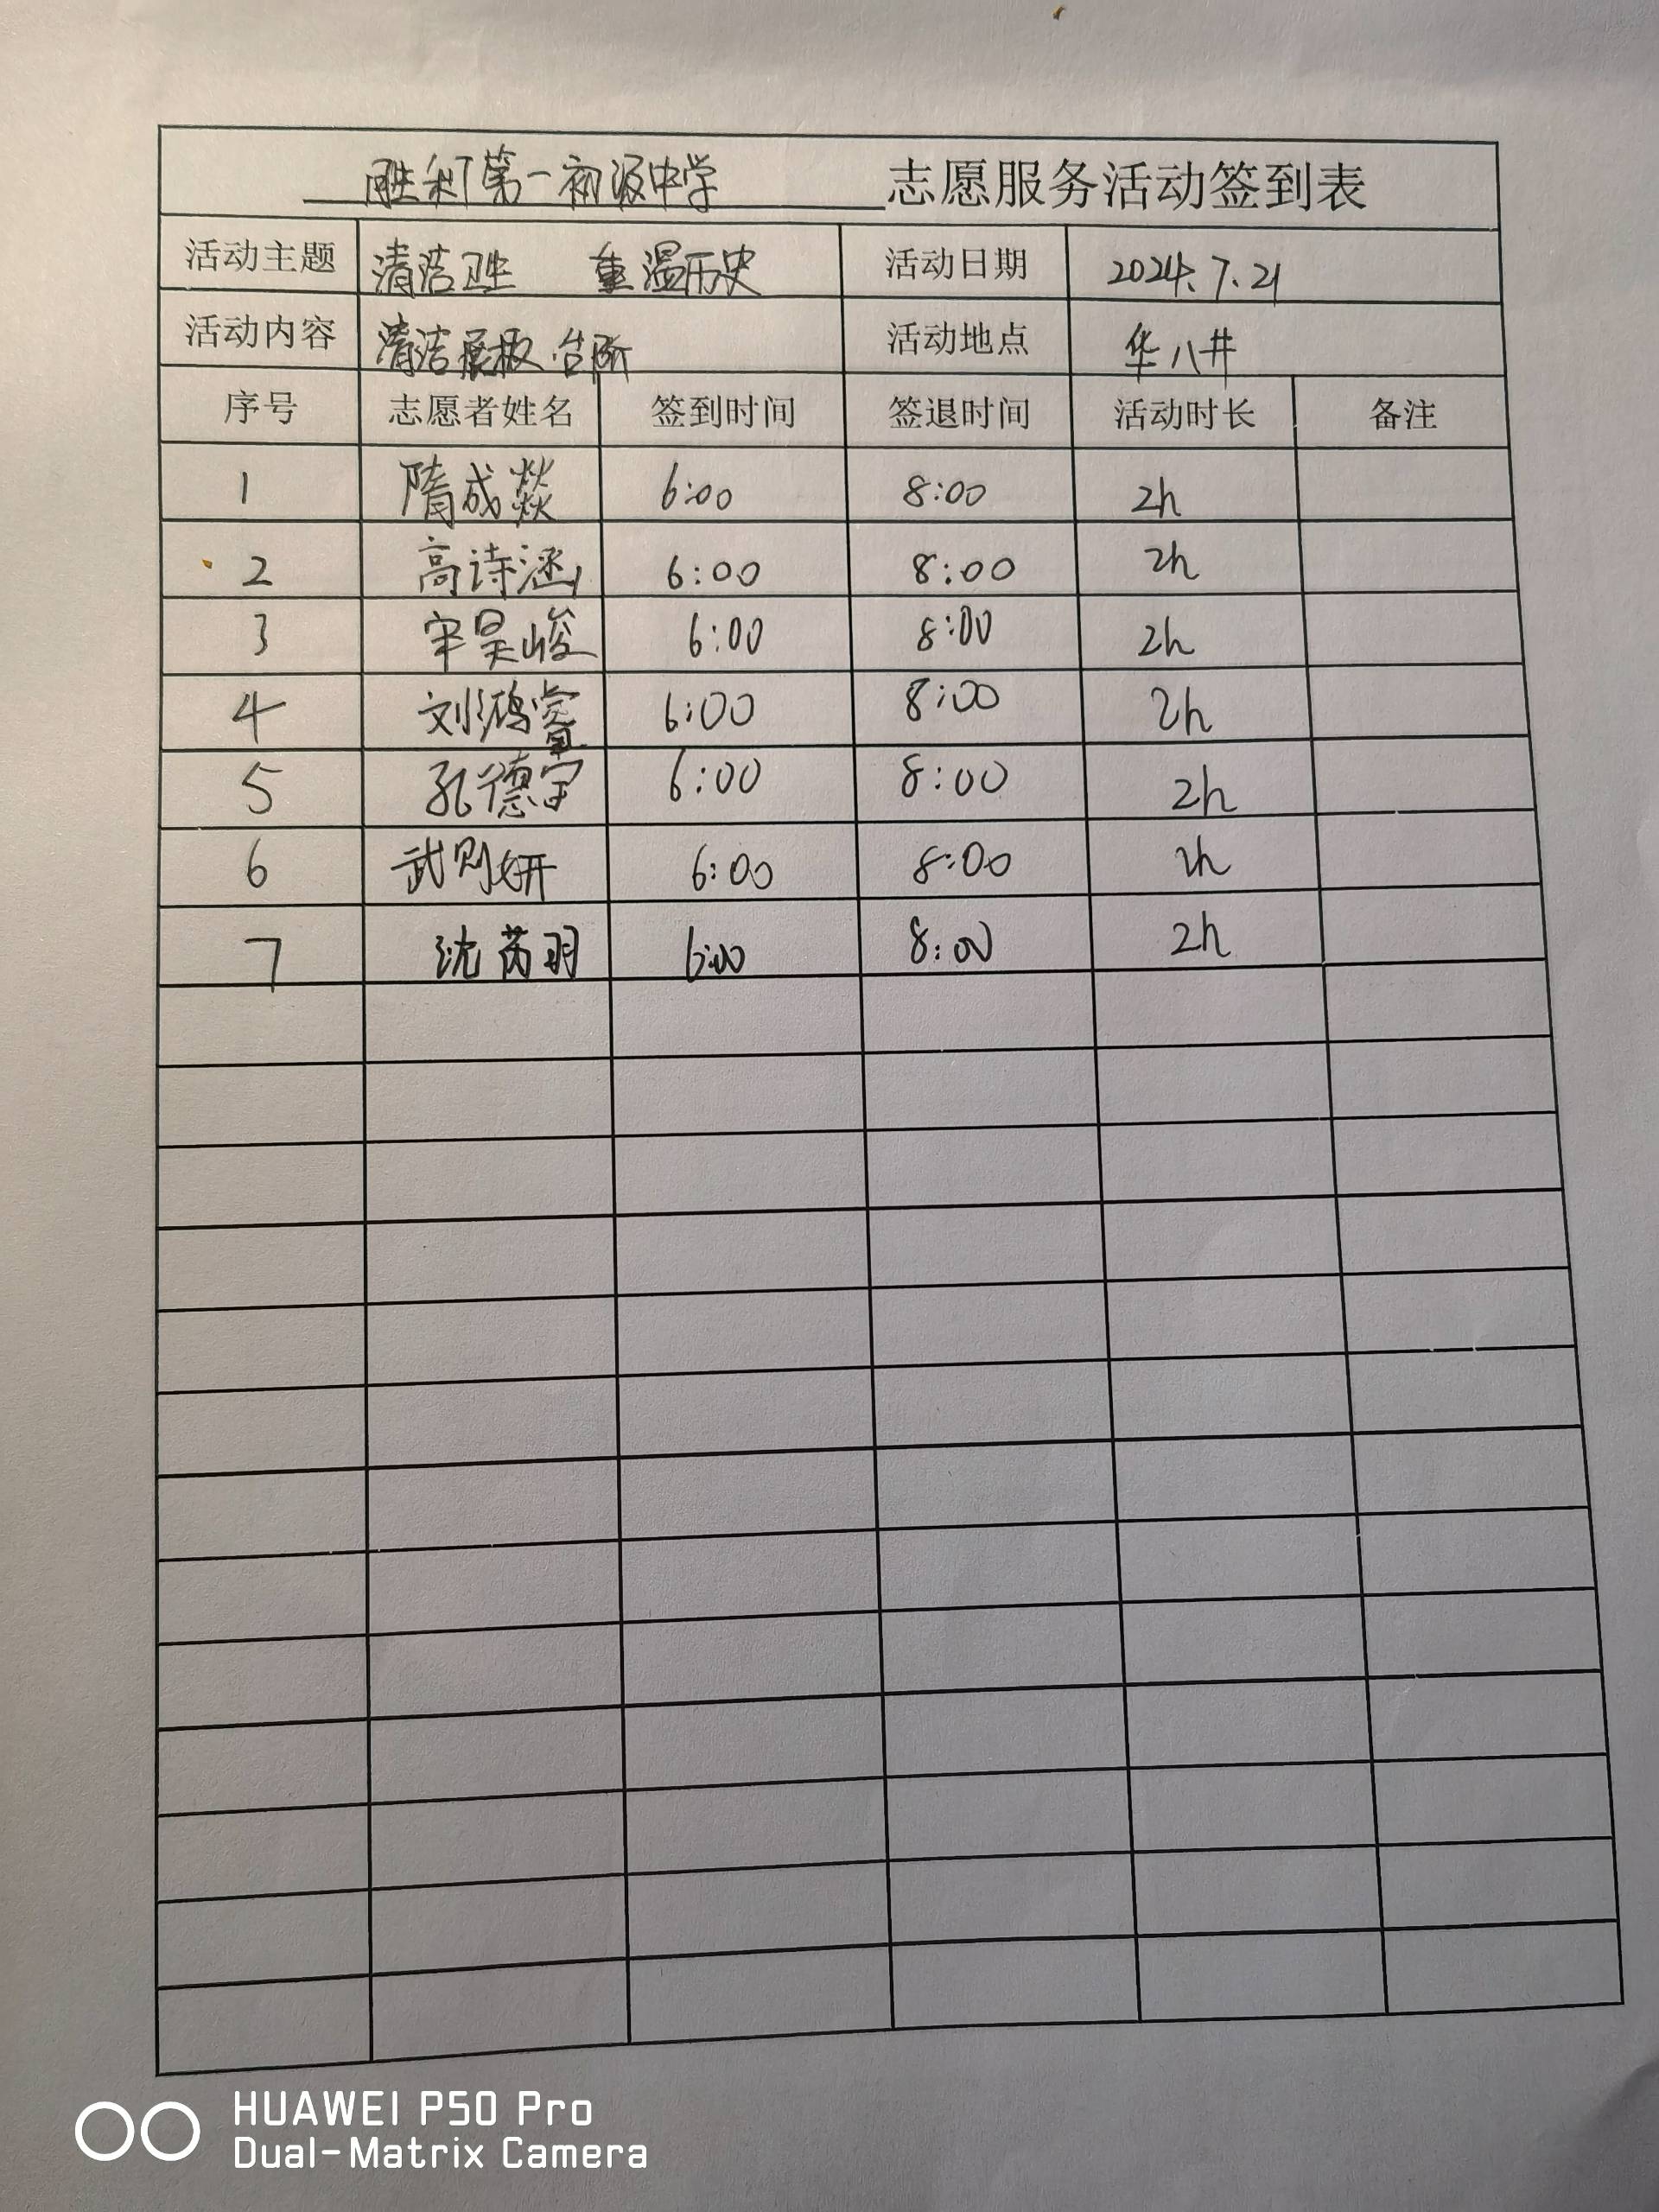 胜利第一初级中学 志愿服务活动签到表
活动主题 清洁卫生 重温历史 活动日期 2024.7.21
活动内容 清洁展板、台阶 活动地点 华八井
序号 志愿者姓名 签到时间 签退时间 活动时长 备注
1 隋成燚 6:00 8:00 2h
2 高诗涵 6:00 8:00 2h
3 宋昊峻 6:00 8:00 2h
4 刘鸿睿 6:00 8:00 2h
5 孔德宇 6:00 8:00 2h
6 武则妍 6:00 8:00 2h
7 沈芮羽 6:00 8:00 2h
HUAWEI P50 Pro
Dual-Matrix Camera